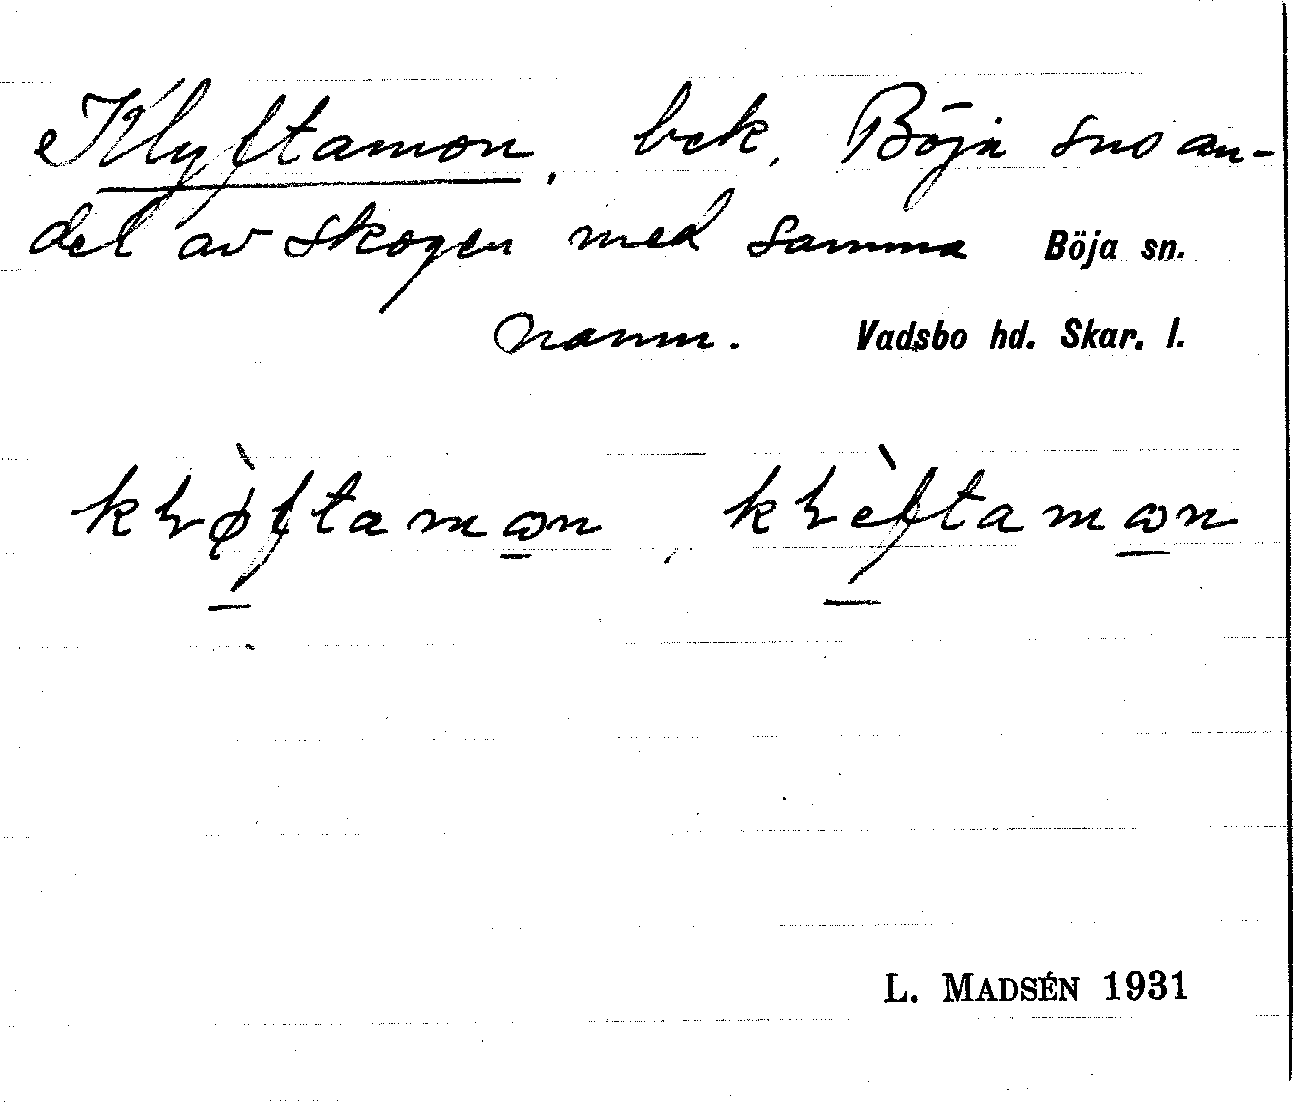 Klyftamon, bek, Böja sns an-
del av skogen med samma Böja sn.
namn. Vadsbo hd. Skar. l.
kƚø̀ftamɷn, kƚèftamɷn
L. MADSÉN 1931